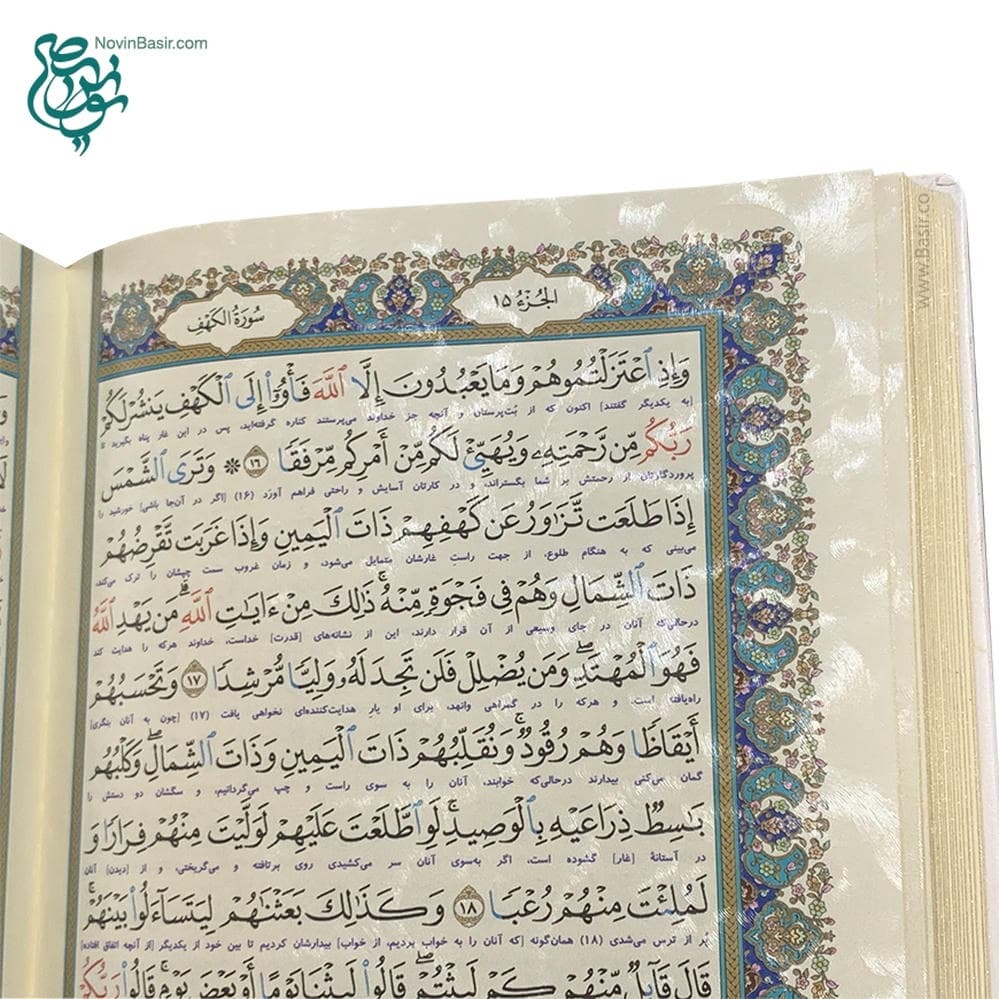 NovinBasir.com
www.Basir.co
الجُزءُ ١٥
سُورَةُ الكَهْفِ
وَإِذِ ٱعْتَزَلْتُمُوهُمْ وَمَا يَعْبُدُونَ إِلَّا ٱللَّهَ فَأْوُۥٓا۟ إِلَى ٱلْكَهْفِ يَنشُرْ لَكُمْ
[به یکدیگر گفتند] اکنون که از بُت‌پرستان و آنچه جز خداوند می‌پرستند کناره گرفته‌اید، پس در این غار پناه بگیرید تا
رَبُّكُم مِّن رَّحْمَتِهِۦ وَيُهَيِّئْ لَكُم مِّنْ أَمْرِكُم مِّرْفَقًا ١٦ ۞ وَتَرَى ٱلشَّمْسَ
پروردگارتان از رحمتش بر شما بگستراند، و در کارتان آسایش و راحتی فراهم آورَد (۱۶) [اگر در آن‌جا باشی] خورشید را
إِذَا طَلَعَت تَّزَٰوَرُ عَن كَهْفِهِمْ ذَاتَ ٱلْيَمِينِ وَإِذَا غَرَبَت تَّقْرِضُهُمْ
می‌بینی که به هنگام طلوع، از جهت راستِ غارشان متمایل می‌شود، و زمان غروب سمت چپشان را ترک می‌کند،
ذَاتَ ٱلشِّمَالِ وَهُمْ فِى فَجْوَةٍ مِّنْهُ ۚ ذَٰلِكَ مِنْ ءَايَٰتِ ٱللَّهِ ۗ مَن يَهْدِ ٱللَّهُ
درحالی‌که آنان در جای وسیعی از آن قرار دارند، این از نشانه‌های [قدرت] خداست، خداوند هرکه را هدایت کند
فَهُوَ ٱلْمُهْتَدِ ۖ وَمَن يُضْلِلْ فَلَن تَجِدَ لَهُۥ وَلِيًّا مُّرْشِدًا ١٧ وَتَحْسَبُهُمْ
راه‌یافته است. و هرکه را در گمراهی وانهد، برای او یارِ هدایت‌کننده‌ای نخواهی یافت (۱۷) [چون به آنان بنگری]
أَيْقَاظًا وَهُمْ رُقُودٌ ۚ وَنُقَلِّبُهُمْ ذَاتَ ٱلْيَمِينِ وَذَاتَ ٱلشِّمَالِ ۖ وَكَلْبُهُم
گمان می‌کنی بیدارند درحالی‌که خوابند، آنان را به سوی راست و چپ می‌گردانیم، و سگشان دو دستش را
بَٰسِطٌ ذِرَاعَيْهِ بِٱلْوَصِيدِ ۚ لَوِ ٱطَّلَعْتَ عَلَيْهِمْ لَوَلَّيْتَ مِنْهُمْ فِرَارًا وَ
در آستانهٔ [غار] گشوده است، اگر به‌سوی آنان سر می‌کشیدی روی برتافته و می‌گریختی، و از [دیدن] آنان
لَمُلِئْتَ مِنْهُمْ رُعْبًا ١٨ وَكَذَٰلِكَ بَعَثْنَٰهُمْ لِيَتَسَآءَلُوا۟ بَيْنَهُمْ ۚ
پر از ترس می‌شدی (۱۸) همان‌گونه [که آنان را به خواب بردیم، از خواب] بیدارشان کردیم تا بین خود از یکدیگر [از آنچه اتفاق افتاده]
قَالَ قَآئِلٌ مِّنْهُمْ كَمْ لَبِثْتُمْ ۖ قَالُوا۟ لَبِثْنَا يَوْمًا أَوْ بَعْضَ يَوْمٍ ۚ قَالُوا۟ رَبُّكُمْ